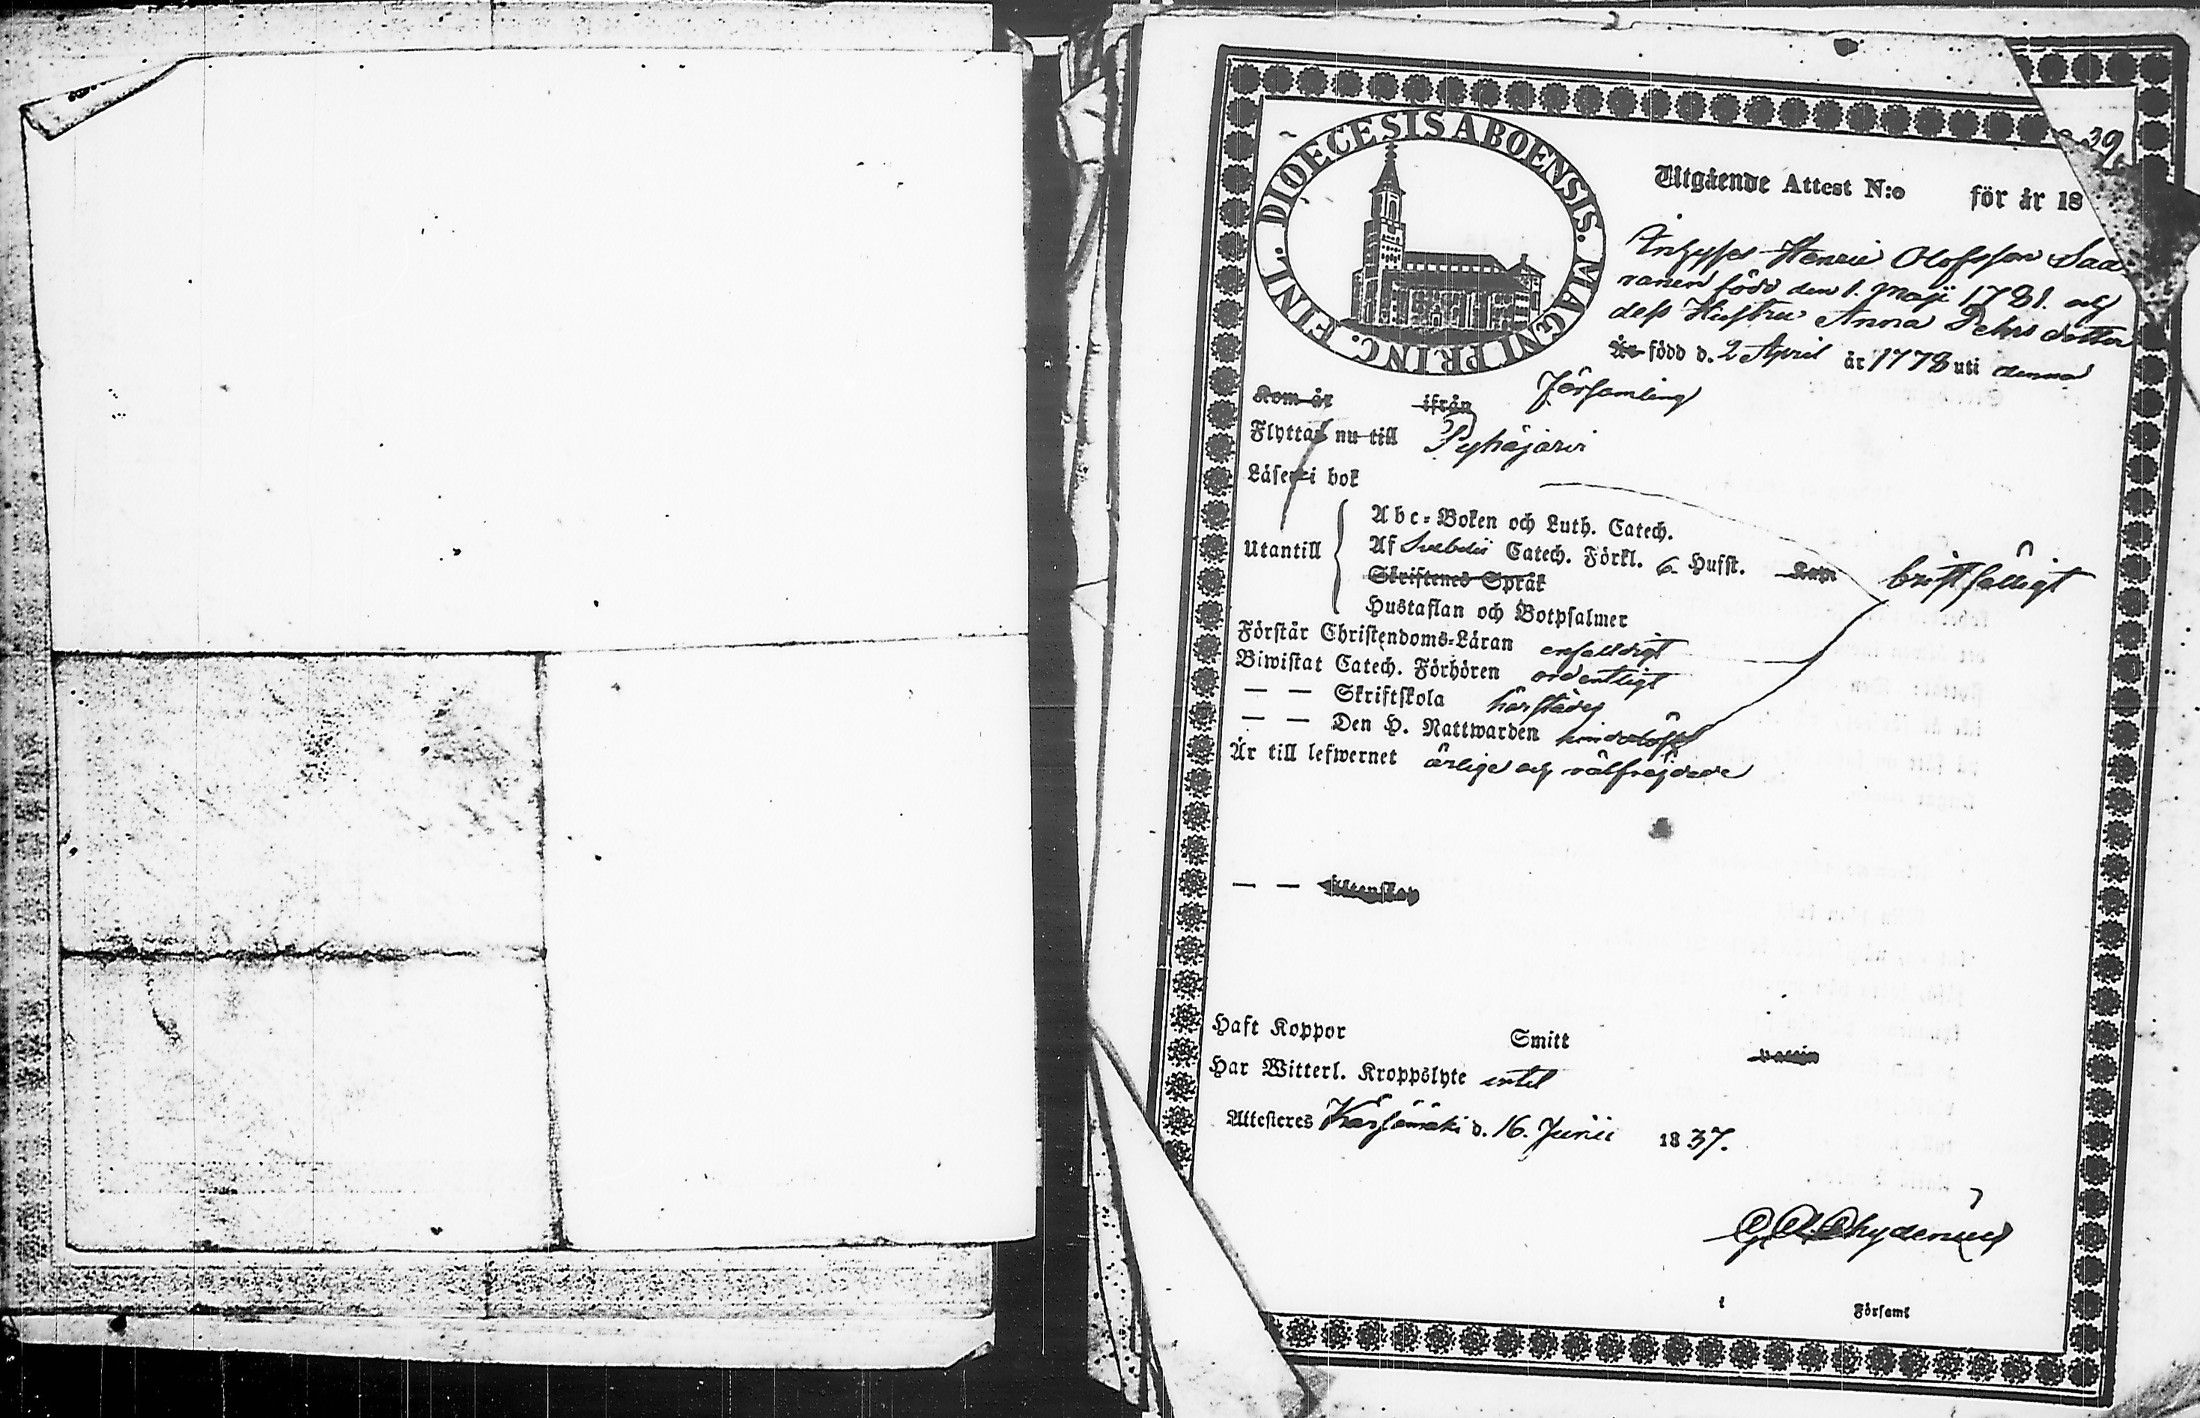 39.
DIOECESIS ABOENSIS. MAGNI PRINC. FINL.
Utgående Attest N:o för år 18
Inhyses Henric Olofsson Saa-
ranen född den 1. Maji 1781. och
dess Hustru Anna Pehrs dotter
Är född d. 2 April år 1778 uti denna
Församling
Kom år ifrån
Flyttar nu till Pyhäjärvi
Läser i bok
Utantill
Abc-Boken och Luth. Catech.
Af Svebelii Catech. Förkl. 6 Hufst. Kap. bristfälligt
Skriftenes Språk
Hustaflan och Botpsalmer
Förstår Christendoms-Läran enfaldigt
Biwistat Catech. Förhören ordentligt
— — Skriftskola härstädes
— — Den H. Nattwarden
Är till lefwernet ärlige och välfrejdade
— —
Haft Koppor Smitt
Har Witterl. Kroppslyte intet
Attesteres Kärsämäki d. 16. Junii 1837.
Chydenius
i Församl